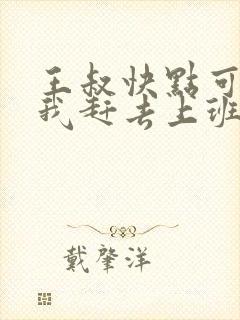 王叔快點可
我赶去上班
戴肇洋